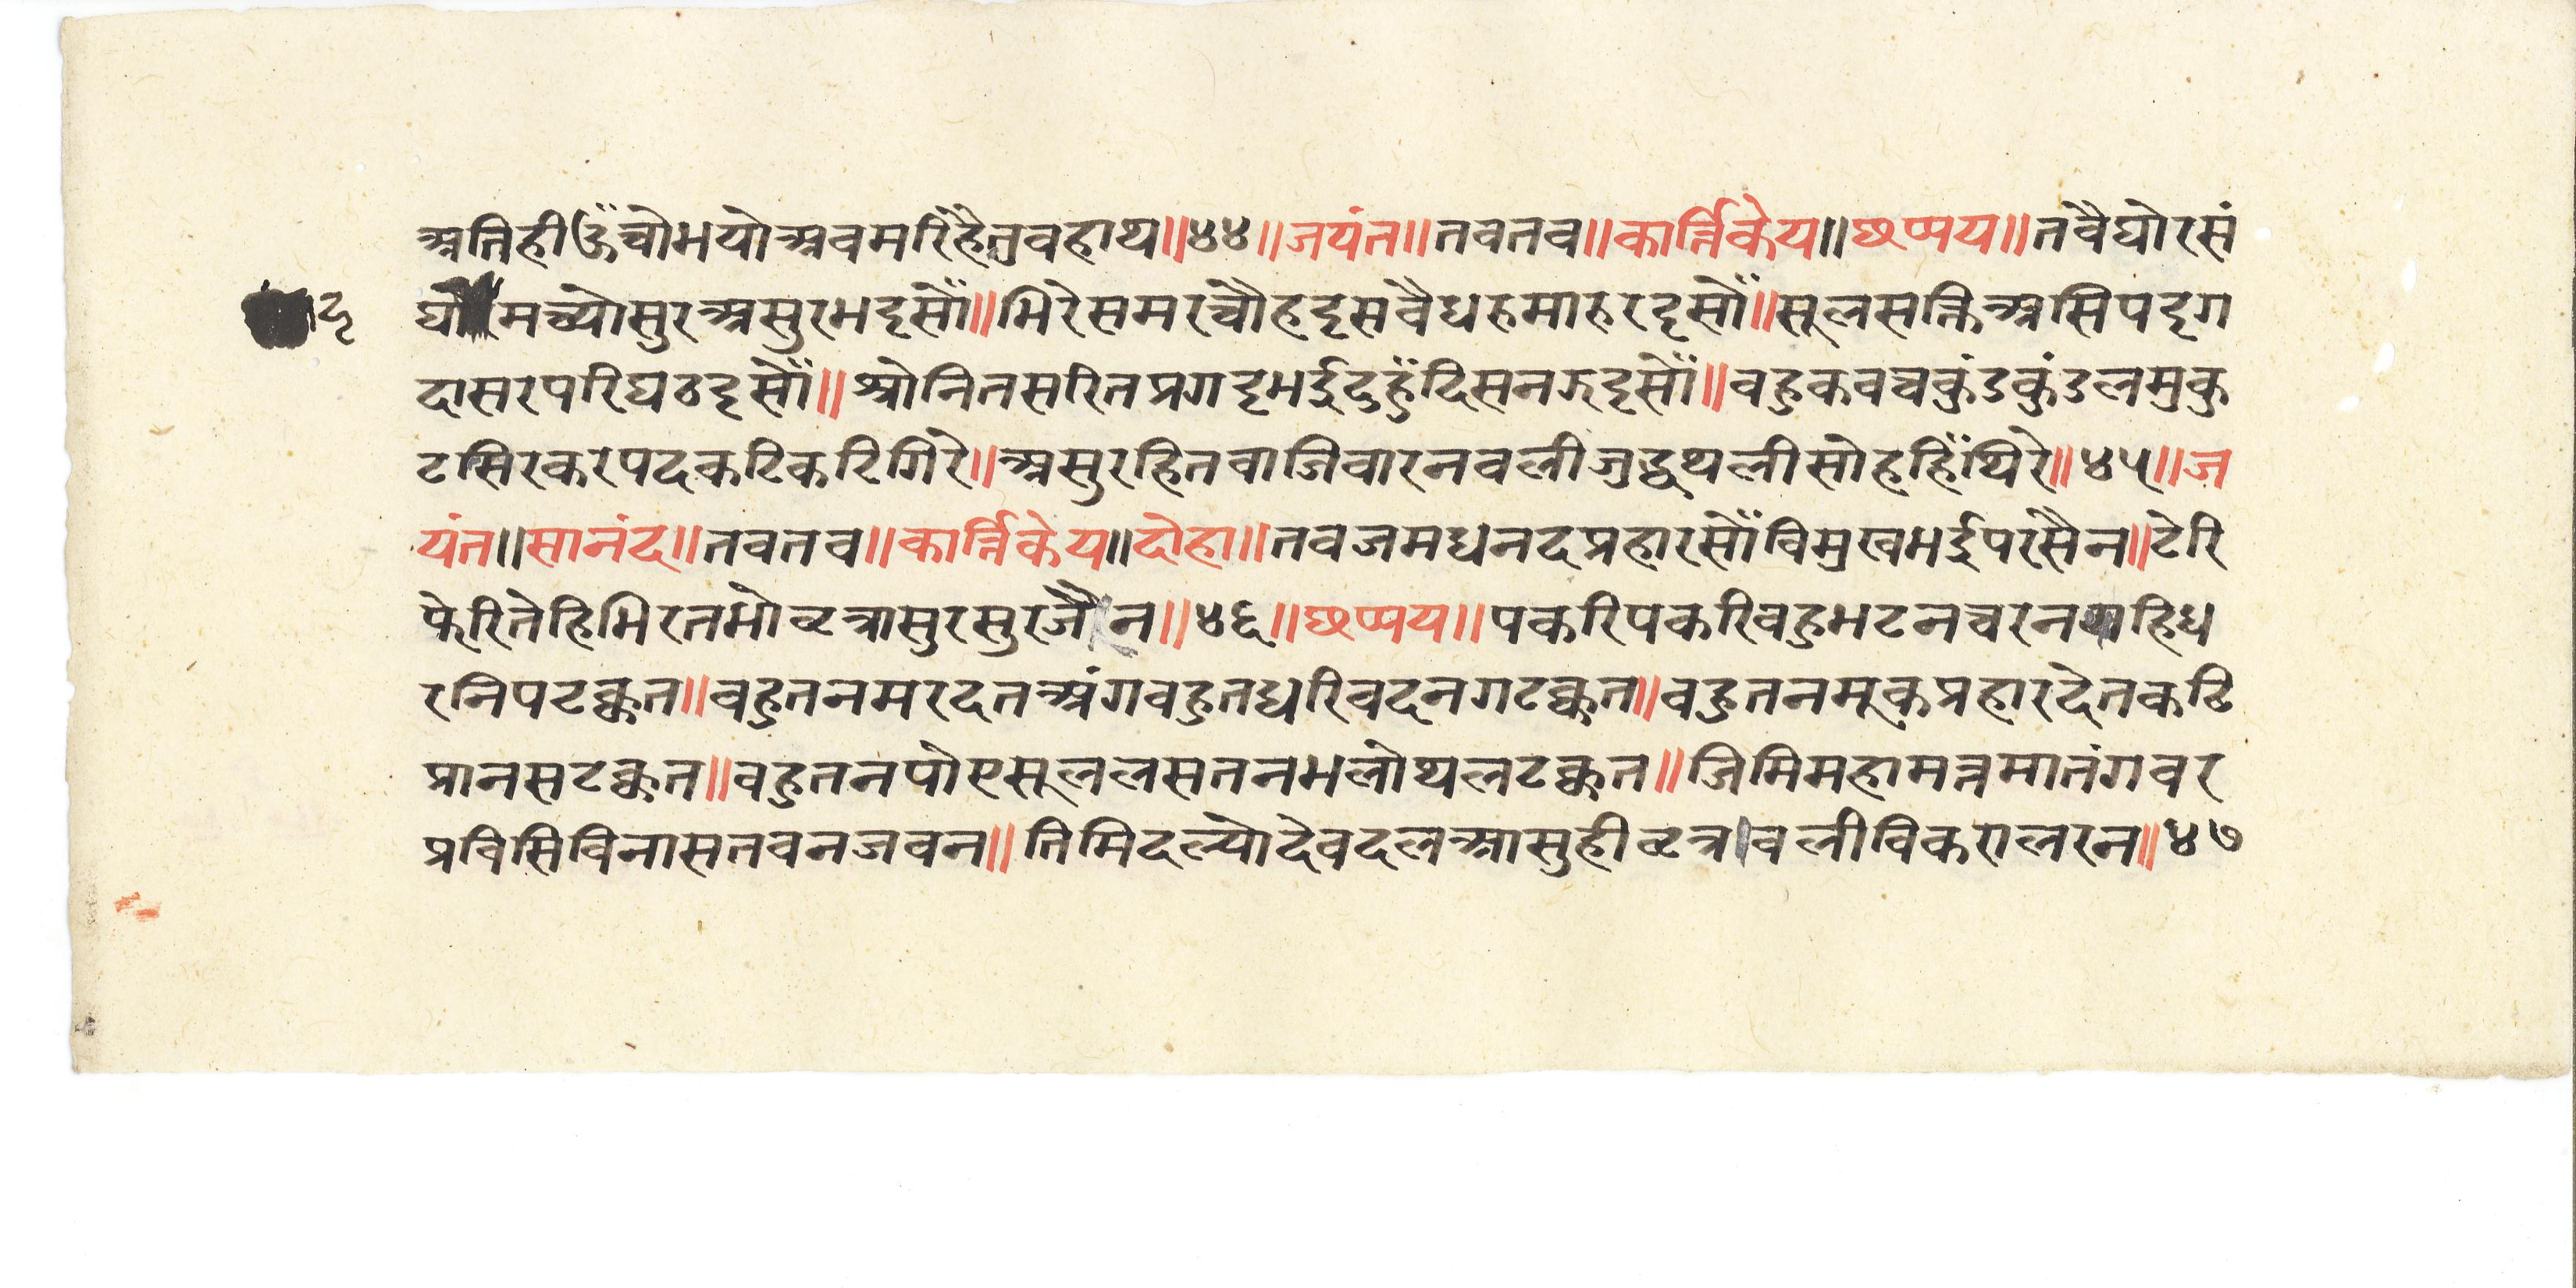 अतिही ऊँचो भयो अब मरिहै तुव हाथ॥४४॥जयंत॥तब तब॥कार्त्तिकेय॥छप्पय॥तबै घोर सं
घ मच्यो सुर असुर भट्टसौँ॥भिरे समर चौहट्ट सबै धरु मारु रट्टसौँ॥सूल सक्ति असि पट्ट ग
ट्ट
दा सर परिघ ठट्टसौँ॥श्रोनित सरित प्रगट्ट भई दुहुँ दिस नरुट्टसौँ॥बहु कवच कुंड कुंडल मुकु
ट सिर कर पद कटि करि गिरे॥असुर हित वाजि वारन बली जुद्ध थली सोहहिँ थिरे॥४५॥ज
यंत॥सानंद॥तब तब॥कार्त्तिकेय॥दोहा॥तब जम धनद प्रहारसौँ विमुख भई पर सैन॥टेरि
फेरि तेहि भिरतभो वृत्रासुर सुर जैन॥४६॥छप्पय॥पकरि पकरि बहु भटन चरन गहि ध
रनि पटक्कत॥बहुतन मरदत अंग बहुत धरि वदन गटक्कत॥बहुतन मूक प्रहार देत कढि
प्रान सटक्कत॥बहुतन पोए सूल लसत नभलौ थल टक्कत॥जिमि महामत्त मातंग वर
प्रविसि विनासत वनज वन॥तिमि दल्यो देवदल आसुही वृत्र बली विकराल रन॥४७